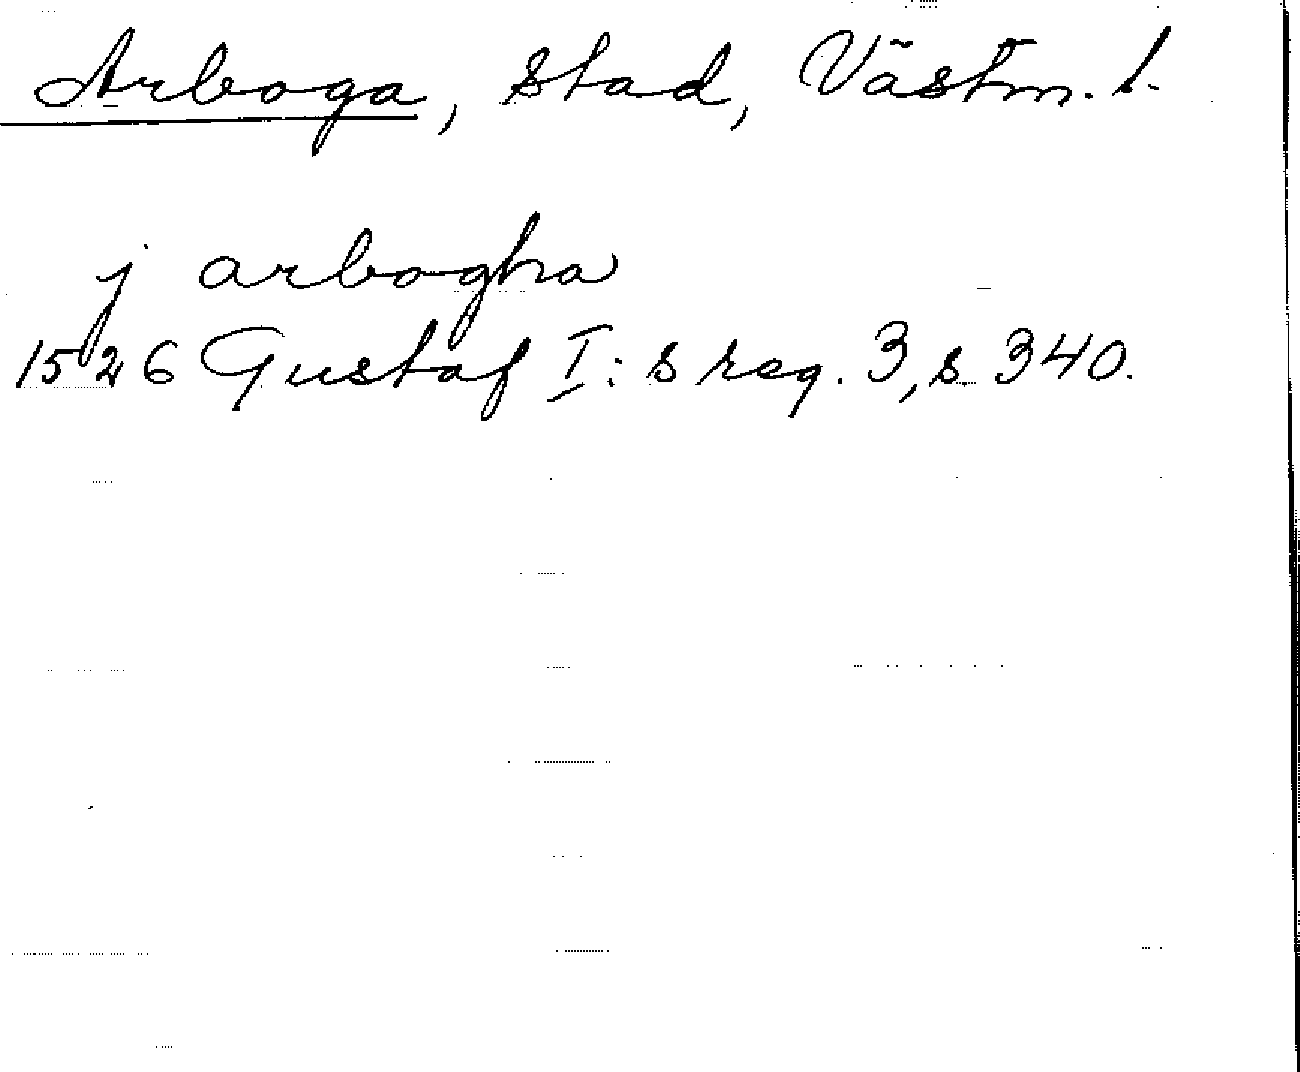 Arboga, stad, Västm. l.
j arbogha
1526 Gustaf I:s reg. 3, s. 340.